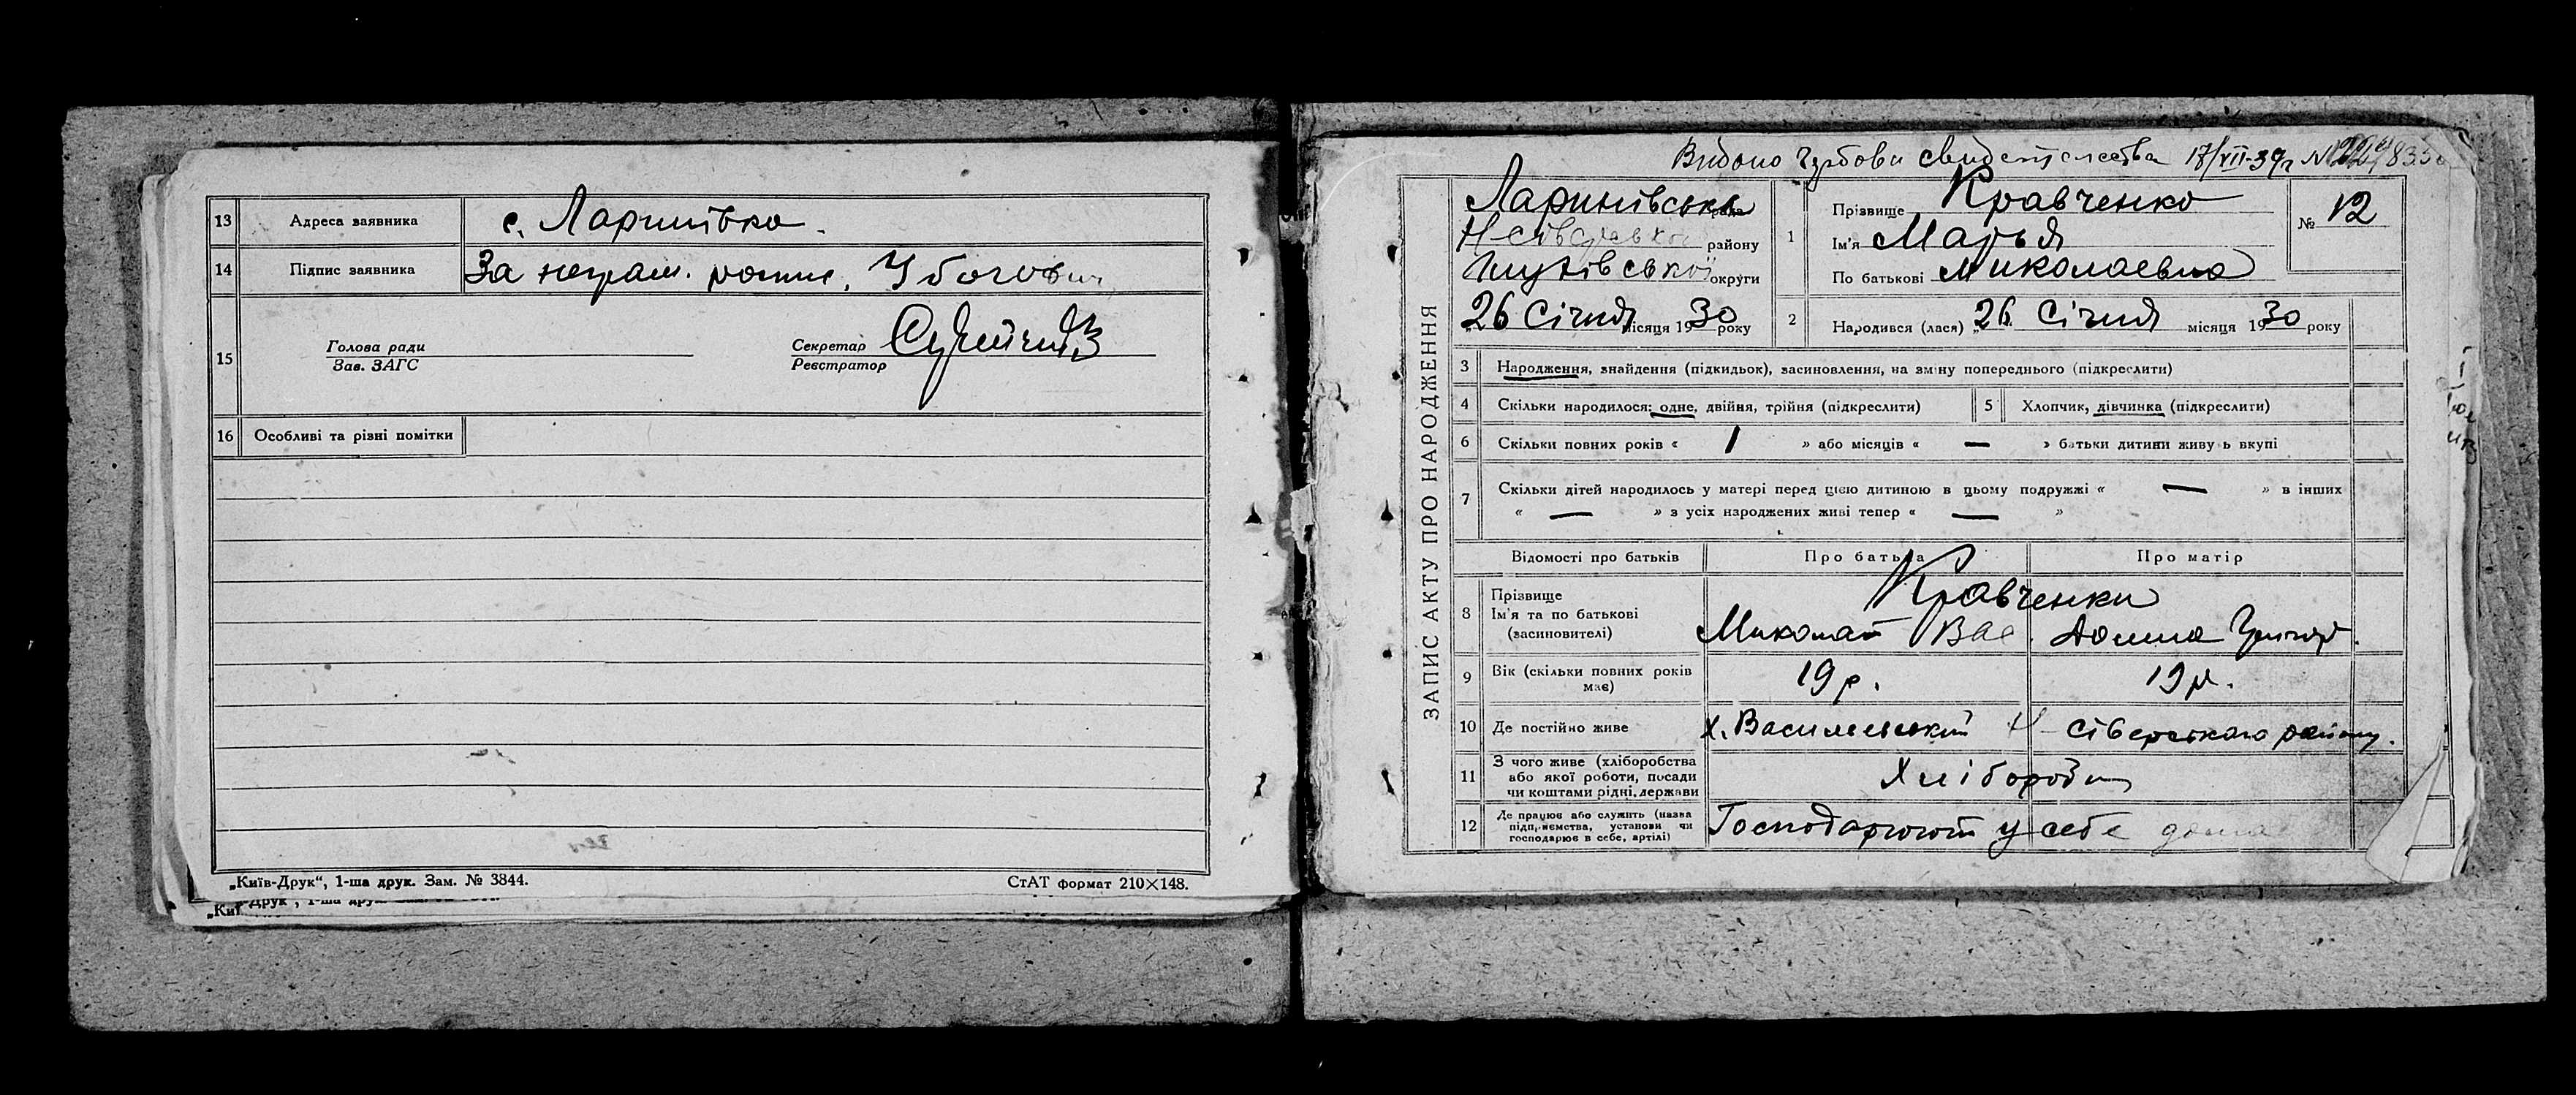 13 Адреса заявника с. Ларинівка.
14 Підпис заявника За неграм. роспис.
15 Голова ради
Зав. ЗАГС
Секретар
Реєстратор
16 Особливі та різні помітки
„Київ-Друк“, 1-ша друк. Зам. № 3844.
СтАТ формат 210×148.
17/VII-39р №
ЗАПИС АКТУ ПРО НАРОДЖЕННЯ
Ларинівська рада
Н-Сіверськ району
Глухівської округи
26 Січня місяця 1930 року
1 Прізвище Кравченко
Ім'я Марья
По батькові Миколаевна
№ 12
2 Народився (лася) 26 Січня місяця 1930 року
3 Народження, знайдення (підкидьок), засиновлення, на зміну попереднього (підкреслити)
4 Скільки народилося: одне, двійня, трійня (підкреслити) 5 Хлопчик, дівчинка (підкреслити)
6 Скільки повних років « 1 » або місяців « — » батьки дитини живуть вкупі
7 Скільки дітей народилось у матері перед цією дитиною в цьому подружжі « — » в інших
« — » з усіх народжених живі тепер « — »
Відомості про батьків Про батька Про матір
8 Прізвище
Ім'я та по батькові
(засиновителі)
Кравченки
Миколай Вас. Григор.
9 Вік (скільки повних років
має)
19 р. 19 р.
10 Де постійно живе х. Васильевский Н-Сіверського району.
11 З чого живе (хліборобства
або якої роботи, посади
чи коштами рідні, держави
Хлібороби
12 Де працює або служить (назва
підприємства, установи чи
господарює в себе, артілі)
Господарюют у себе дома